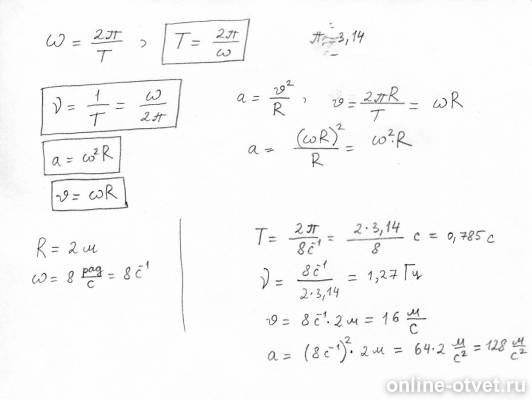 ω = 2π/T , T = 2π/ω π = 3,14
ν = 1/T = ω/2π
a = ϑ²/R , ϑ = 2πR/T = ωR
a = ω²R
a = (ωR)²/R = ω²·R
ϑ = ωR
R = 2 м
ω = 8 рад/с = 8 с⁻¹
T = 2π/8с⁻¹ = 2·3,14/8 с = 0,785 с
ν = 8с⁻¹/2·3,14 = 1,27 Гц
ϑ = 8с⁻¹·2 м = 16 м/с
a = (8с⁻¹)²·2 м = 64·2 м/с² = 128 м/с²
online-otvet.ru